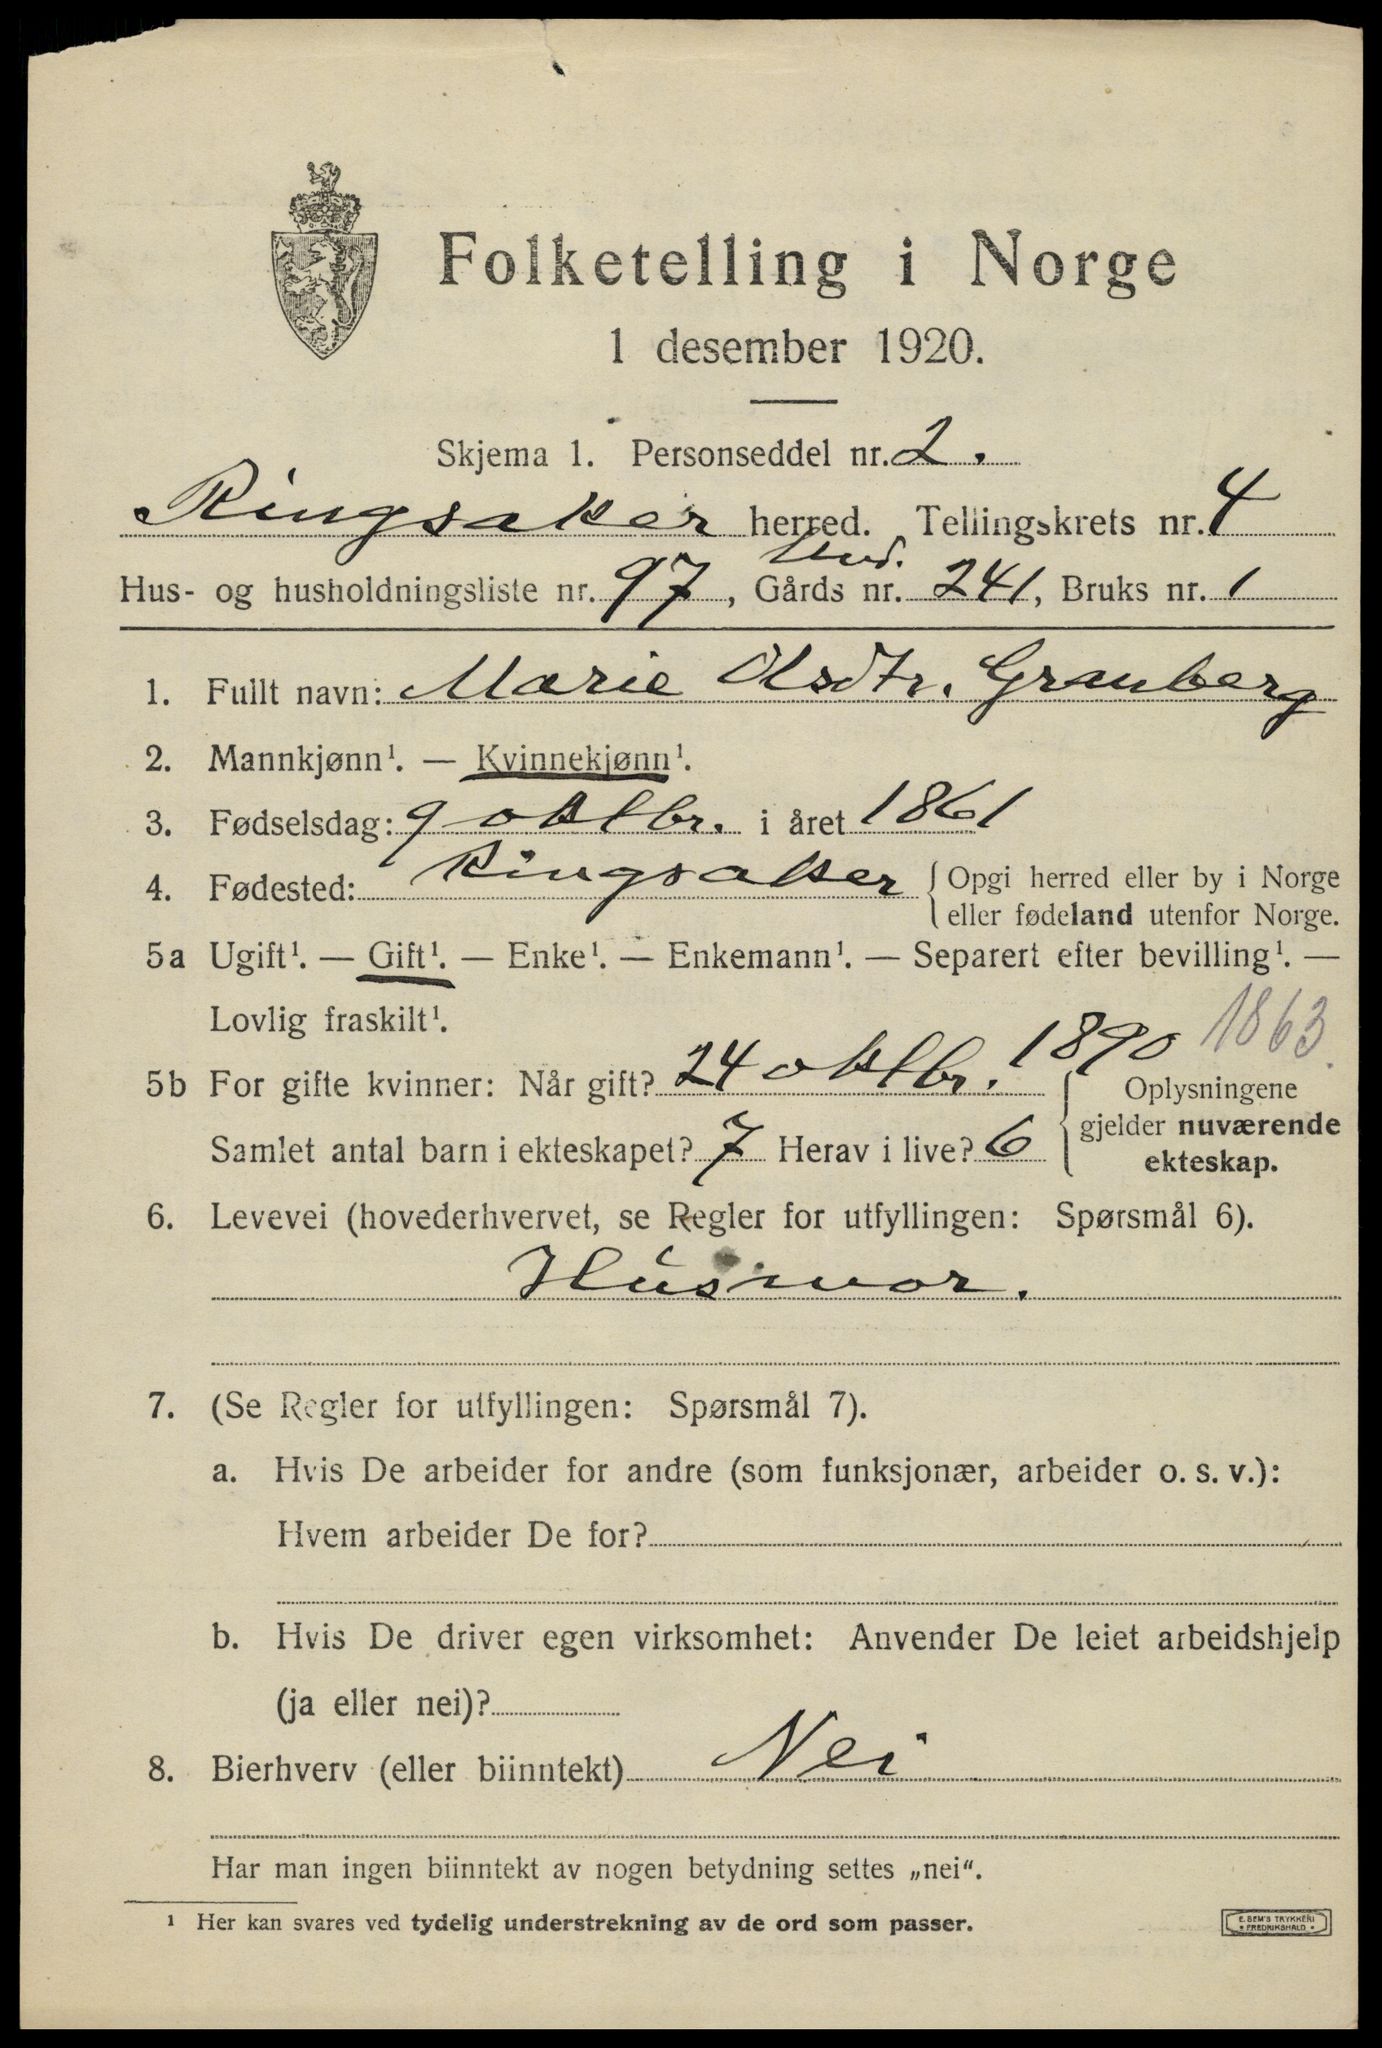 Folketelling i Norge
1 desember 1920.
Skjema 1. Personseddel nr. 2.
Ringsaker herred. Tellingskrets nr. 4
Und.
Hus- og husholdningsliste nr. 97, Gårds nr. 241, Bruks nr. 1
1. Fullt navn: Marie Olsdtr. Granberg
2. Mannkjønn¹. — Kvinnekjønn¹.
3. Fødselsdag: 9 oktbr. i året 1861
4. Fødested: Ringsaker { Opgi herred eller by i Norge
eller fødeland utenfor Norge.
5a Ugift¹. — Gift¹. — Enke¹. — Enkemann¹. — Separert efter bevilling¹. —
Lovlig fraskilt¹.
1863
5b For gifte kvinner: Når gift? 24 oktbr. 1890 { Oplysningene
gjelder nuværende
Samlet antal barn i ekteskapet? 7 Herav i live? 6
ekteskap.
6. Levevei (hovederhvervet, se Regler for utfyllingen: Spørsmål 6).
Husmor.
7. (Se Regler for utfyllingen: Spørsmål 7).
a. Hvis De arbeider for andre (som funksjonær, arbeider o. s. v.):
Hvem arbeider De for?
b. Hvis De driver egen virksomhet: Anvender De leiet arbeidshjelp
(ja eller nei)?
8. Bierhverv (eller biinntekt) Nei
Har man ingen biinntekt av nogen betydning settes „nei“.
¹ Her kan svares ved tydelig understrekning av de ord som passer.
E. SEM'S TRYKKERI
* FREDRIKSHALD *